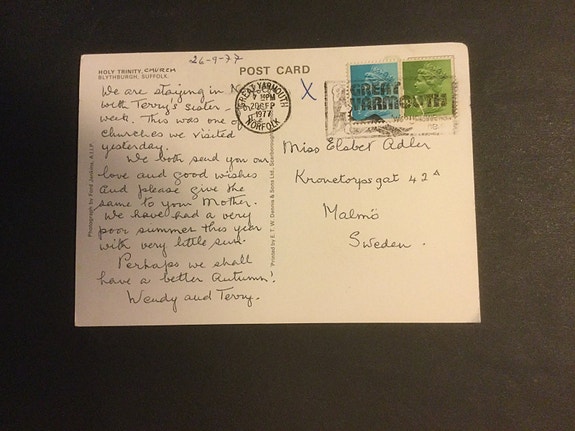 26-9-77
HOLY TRINITY, CHURCH
BLYTHBURGH, SUFFOLK.
POST CARD
We are staying in N
with Terry's sister
week. This was one of
churches we visited
yesterday.
We both send you our
love and good wishes
and please give the
same to your Mother.
We have had a very
poor summer this year
with very little sun.
Perhaps we shall
have a better Autumn!
Wendy and Terry.
Photograph by Ford Jenkins, A.I.I.P.
Printed by E. T. W. Dennis & Sons Ltd., Scarborough
GREAT YARMOUTH
PM
1977
NORFOLK
X
GREAT
YARMOUTH
Miss Elsbet Adler
Kronetorpsgat 42A
Malmö
Sweden.